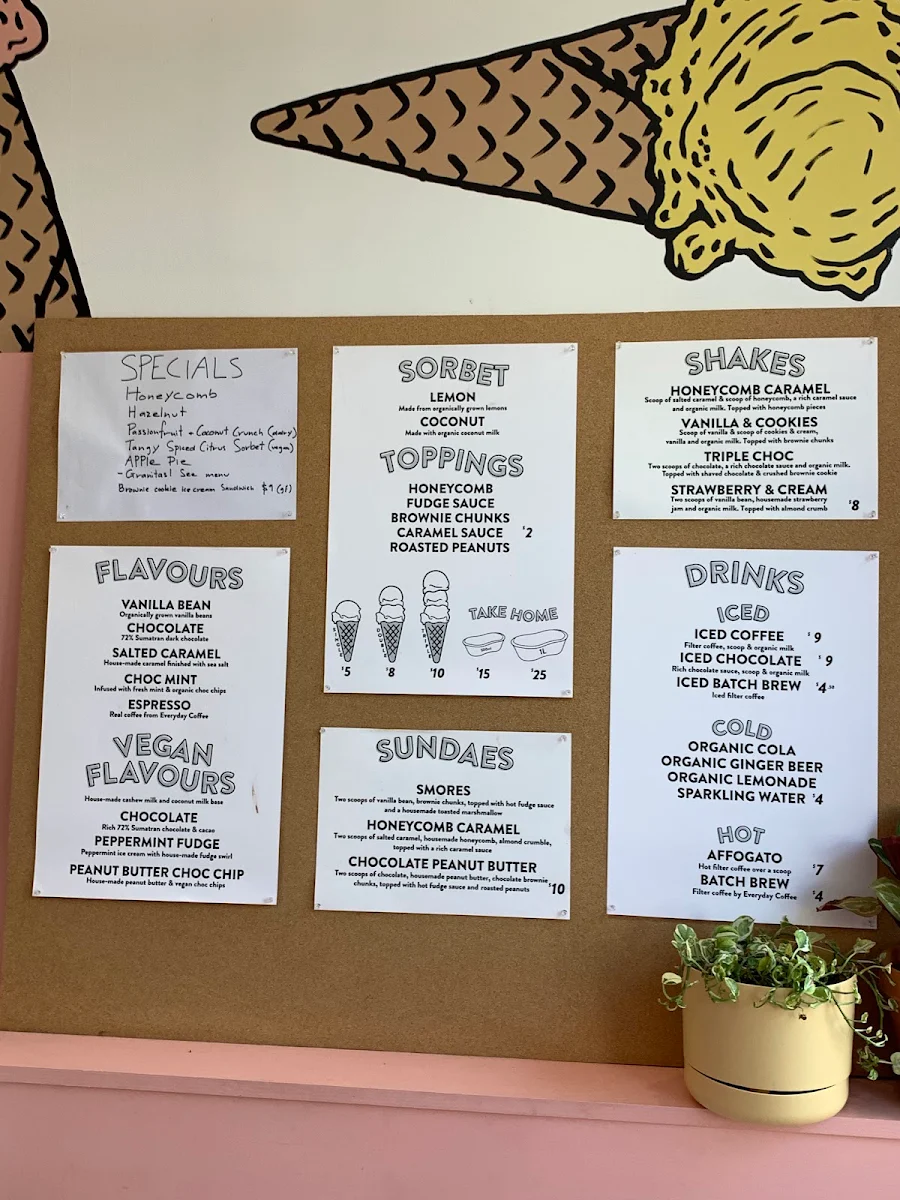 SPECIALS
Honeycomb
Hazelnut
Passionfruit + Coconut Crunch (dairy)
Tangy Spiced Citrus Sorbet (vegan)
APPle Pie
-Granitas! See menu
Brownie cookie ice cream Sandwich $9 (gf)
FLAVOURS
VANILLA BEAN
Organically grown vanilla beans
CHOCOLATE
72% Sumatran dark chocolate
SALTED CARAMEL
House-made caramel finished with sea salt
CHOC MINT
Infused with fresh mint & organic choc chips
ESPRESSO
Real coffee from Everyday Coffee
VEGAN
FLAVOURS
House-made cashew milk and coconut milk base
CHOCOLATE
Rich 72% Sumatran chocolate & cacao
PEPPERMINT FUDGE
Peppermint ice cream with house-made fudge swirl
PEANUT BUTTER CHOC CHIP
House-made peanut butter & vegan choc chips
SORBET
LEMON
Made from organically grown lemons
COCONUT
Made with organic coconut milk
TOPPINGS
HONEYCOMB
FUDGE SAUCE
BROWNIE CHUNKS
CARAMEL SAUCE $2
ROASTED PEANUTS
SINGLE
DOUBLE
TRIPLE
TAKE HOME
500ml
1L
$5 $8 $10 $15 $25
SUNDAES
SMORES
Two scoops of vanilla bean, brownie chunks, topped with hot fudge sauce
and a housemade toasted marshmallow
HONEYCOMB CARAMEL
Two scoops of salted caramel, housemade honeycomb, almond crumble,
topped with a rich caramel sauce
CHOCOLATE PEANUT BUTTER
Two scoops of chocolate, housemade peanut butter, chocolate brownie
chunks, topped with hot fudge sauce and roasted peanuts $10
SHAKES
HONEYCOMB CARAMEL
Scoop of salted caramel & scoop of honeycomb, a rich caramel sauce
and organic milk. Topped with honeycomb pieces
VANILLA & COOKIES
Scoop of vanilla & scoop of cookies & cream,
vanilla and organic milk. Topped with brownie chunks
TRIPLE CHOC
Two scoops of chocolate, a rich chocolate sauce and organic milk.
Topped with shaved chocolate & crushed brownie cookie
STRAWBERRY & CREAM
Two scoops of vanilla bean, housemade strawberry
jam and organic milk. Topped with almond crumb $8
DRINKS
ICED
ICED COFFEE $9
Filter coffee, scoop & organic milk
ICED CHOCOLATE $9
Rich chocolate sauce, scoop & organic milk
ICED BATCH BREW $4.50
Iced filter coffee
COLD
ORGANIC COLA
ORGANIC GINGER BEER
ORGANIC LEMONADE
SPARKLING WATER $4
HOT
AFFOGATO $7
Hot filter coffee over a scoop
BATCH BREW $4
Filter coffee by Everyday Coffee